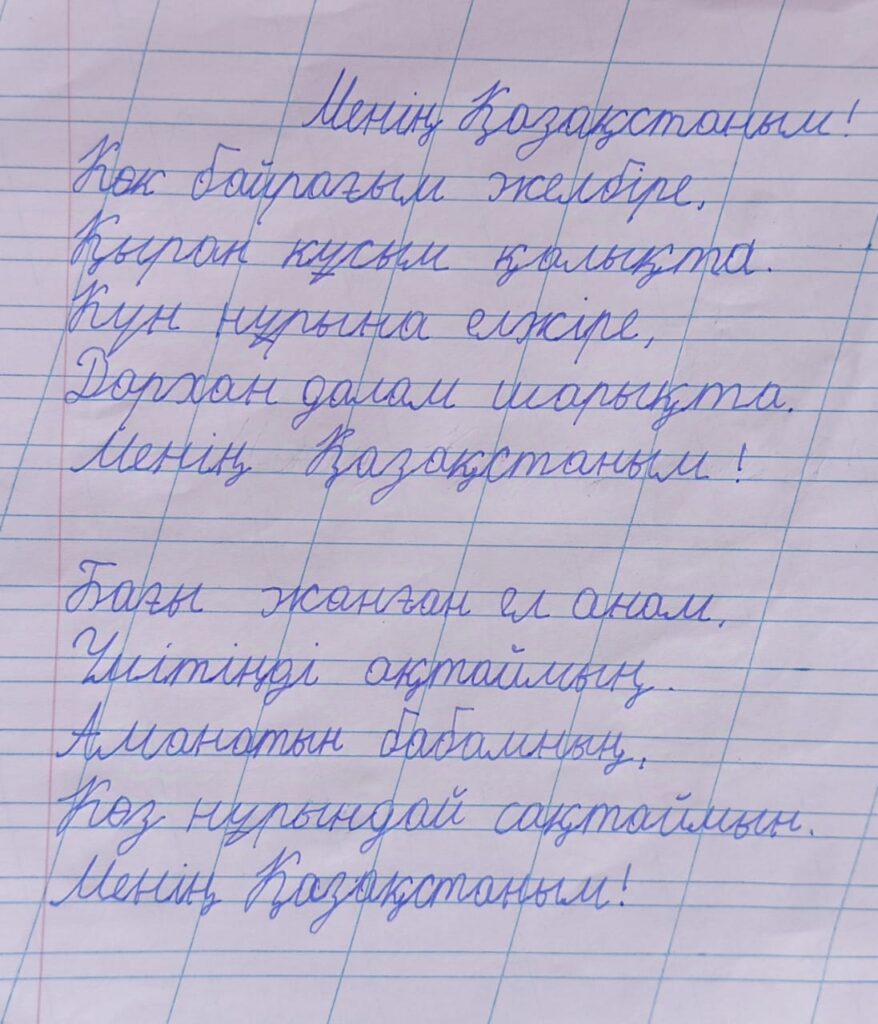 Менің Қазақстаным!
Көк байрағым желбіре,
Қыран құсым қалықта.
Күн нұрына елжіре,
Дархан далам шарықта.
Менің Қазақстаным!
Бағы жанған ел анам,
Үмітіңді ақтаймың.
Аманатын бабамның,
Көз нұрындай сақтаймын.
Менің Қазақстаным!